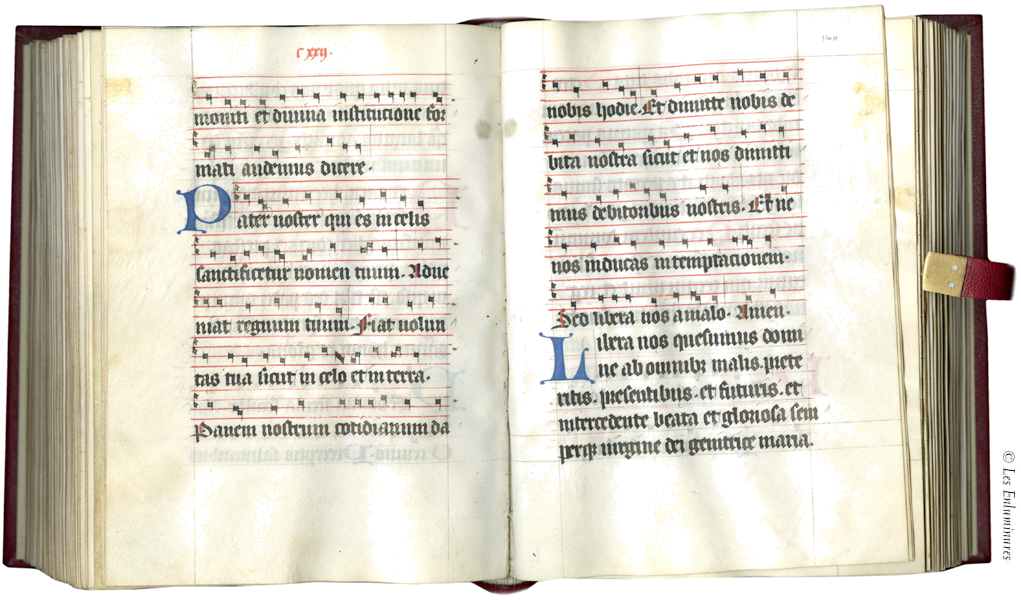 c xxij.
moniti et divina institucione for
mati audemus dicere.
Pater noster qui es in celis
sanctificetur nomen tuum. Adue
niat regnum tuum. Fiat uolun
tas tua sicut in celo et in terra.
Panem nostrum cotidianum da
160
nobis hodie. Et dimitte nobis de
bita nostra sicut et nos dimitti
mus debitoribus nostris. Et ne
nos inducas in temptacionem.
Sed libera nos a malo. Amen.
Libera nos quesumus domi
ne ab omnibz malis. prete
ritis. presentibus. et futuris. et
intercedente beata et gloriosa sem
perqz uirgine dei genitrice maria.
© Les Enluminures